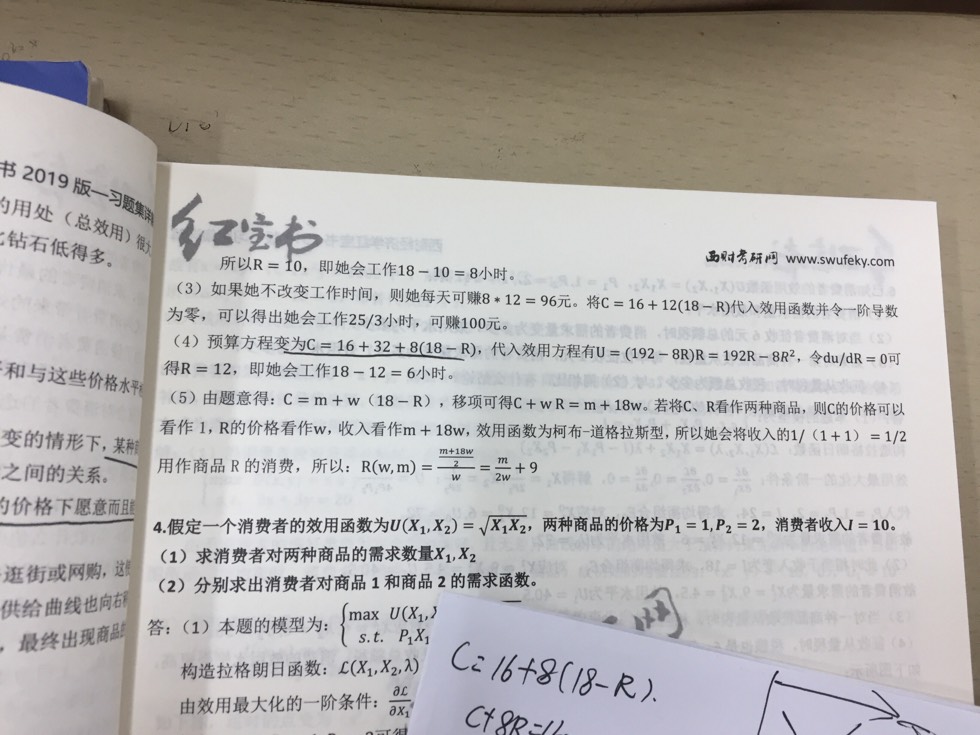 书 2019 版—习题集详
的用处（总效用）很大
钻石低得多。
和与这些价格水平
变的情形下，某种
之间的关系。
的价格下愿意而且
逛街或网购，这
供给曲线也向右
，最终出现商品
红宝书
西财考研网 www.swufeky.com
所以R = 10，即她会工作18 − 10 = 8小时。
（3）如果她不改变工作时间，则她每天可赚8 * 12 = 96元。将C = 16 + 12(18 − R)代入效用函数并令一阶导数
为零，可以得出她会工作25/3小时，可赚100元。
（4）预算方程变为C = 16 + 32 + 8(18 − R)，代入效用方程有U = (192 − 8R)R = 192R − 8R²，令du/dR = 0可
得R = 12，即她会工作18 − 12 = 6小时。
（5）由题意得：C = m + w（18 − R），移项可得C + w R = m + 18w。若将C、R看作两种商品，则C的价格可以
看作 1，R的价格看作w，收入看作m + 18w，效用函数为柯布−道格拉斯型，所以她会将收入的1/（1 + 1）= 1/2
用作商品 R 的消费，所以：R(w, m) = ((m+18w)/2)/w = m/2w + 9
4.假定一个消费者的效用函数为U(X₁, X₂) = √X₁X₂，两种商品的价格为P₁ = 1, P₂ = 2，消费者收入I = 10。
（1）求消费者对两种商品的需求数量X₁, X₂
（2）分别求出消费者对商品 1 和商品 2 的需求函数。
答：（1）本题的模型为：{max U(X₁,
s.t. P₁X₁
构造拉格朗日函数：ℒ(X₁, X₂, λ)
由效用最大化的一阶条件：∂ℒ/∂X₁
C=16+8(18-R).
C+8R=